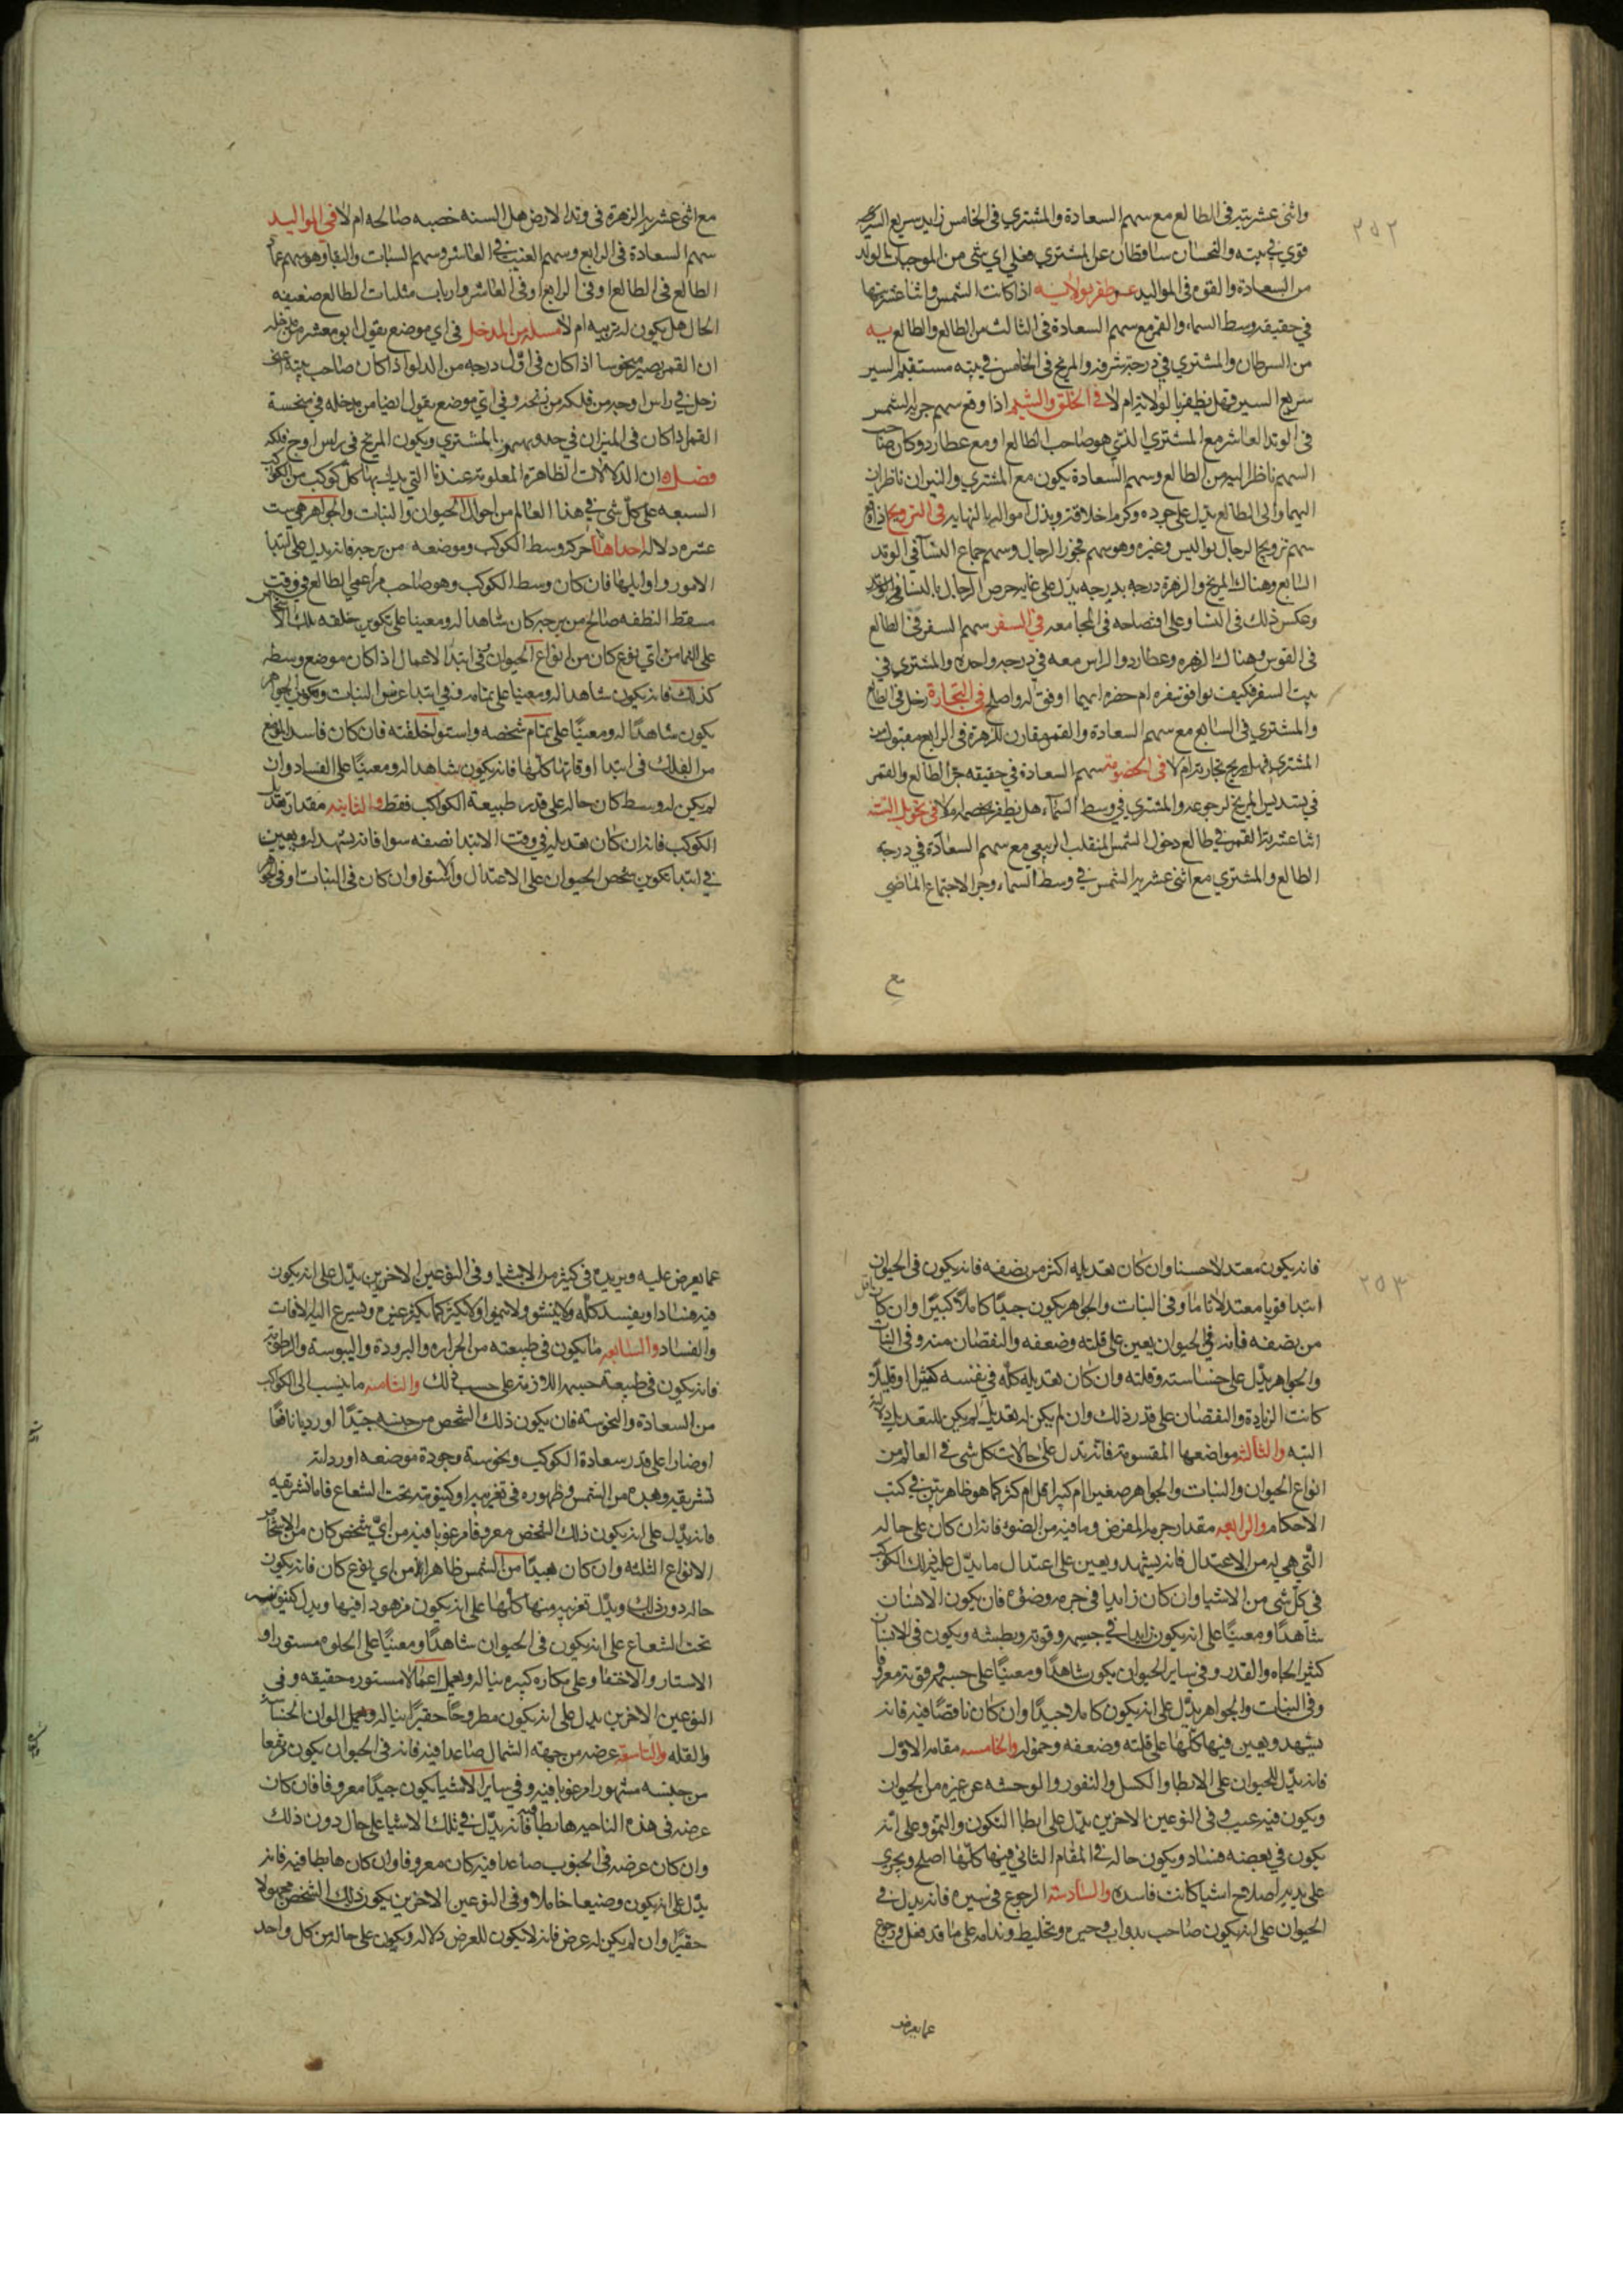 ٢٥٢
واثنى عشريته فى الطالع مع سهم السعادة والمشتري فى الخامس زايد سريع السير
قوي فى بيته والنحسان ساقطان عن المشتري فعلى اي شى من الموجبات المولد
من السعادة والقوه فى المواليد اذا كانت الشمس واثنا عشريتها
فى حقيقه وسط السماء والقمر مع سهم السعادة فى الثالث من الطالع والطالع يه
من السرطان والمشتري فى درجة شرفه والمريخ فى الخامس فى بيته مستقيم السير
سريع السير فهل يظفر بالولايه ام لا فى الخلق والشيم اذا وقع سهم جرا الشمس
فى الوتد العاشر مع المشتري الذي هو صاحب الطالع او مع عطارد وكان صاحب
السهم ناظرا اليه من الطالع وسهم السعادة يكون مع المشتري والنيران ناظران
اليهما والى الطالع يدل على جوده وكرم اخلاقه وبذل امواله بالنهايه فى التزويج اذا وقع
سهم تزويج الرجال لواليس وغيره وهو سهم فجور الرجال وسهم جماع النسا فى الوتد
السابع وهناك المريخ والزهرة درجه بدرجه يدل على غايه حرص الرجال بالنسا فى الوتد
وعكس ذلك فى النسا وعلى افتضاحه فى المجامعه فى السفر سهم السفر فى الطالع
فى القوس وهناك الزهره وعطارد والراس معه فى درجه واحده والمشتري فى
بيت السفر فكيف يوافق سفره ام حضره ايهما اوفق له واصلح فى التجارة زحل فى الطالع
والمشتري فى السابع مع سهم السعادة والقمر مقارن للزهرة فى الرابع مقبول من
المشتري فهل يربح تجارته ام لا فى الخصومة سهم السعادة فى حقيقه جزء الطالع والقمر
فى تسديس المريخ لرجوعه والمشتري فى وسط السماء هل يظفر بخصمه ام لا فى تحويل السنه
اثنا عشرية القمر فى طالع دخول الشمس المنقلب الربيعي مع سهم السعادة فى درجه
الطالع والمشتري مع اثنى عشرية الشمس فى وسط السماء وجزء الاجتماع الماضي
مع
مع اثنى عشرية الزهرة فى وتد الارض هل السنه خصبه صالحه ام لا فى المواليد
سهم السعادة فى الرابع وسهم الغيب فى العاشر وسهم الثبات والبقا وهو سهم عما
الطالع فى الطالع او فى الرابع او فى العاشر وارباب مثلثات الطالع ضعيفه
الحال هل يكون له تربيه ام لا مسله من المدخل فى اي موضع يقول ابو معشر من مدخله
ان القمر يصير منحوسا اذا كان فى اول درجه من الدلو اذا كان صاحب بيته اعنى
زحل فى راس اوجه من فلكه من ينحدر وفى اي موضع يقول ايضا من مدخله فى منحسة
القمر اذا كان فى الميزان فى حدوده بالمشتري ويكون المريخ فى راس اوج فلكه
فصل ان الدلالات الظاهرة المعلومة عندنا التي يدل بها كل كوكب من الكواكب
السبعه على كل شى فى هذا العالم من احوال الحيوان والنبات والجواهر هي ست
عشره دلاله احداها حركه وسط الكوكب وموضعه من برجه فانه يدل على ابتدا
الامور واوايلها فان كان وسط الكوكب وهو صاحب الطالع فى وقت
مسقط النطفه صالح من برجه كان شاهدا له ومعينا على تكوين خلقه تلك الاشخاص
على التمام من اي نوع كان من انواع الحيوان وفى ابتدا الاعمال اذا كان موضع وسطه
كذلك فانه يكون شاهدا له ومعينا على تمامه وفى ابتدا غرس النبات وتكوين الجواهر
يكون شاهدا له ومعينا على تمام شخصه واستوا خلقته فان كان فاسد الموضع
من الفلك فى ابتدا اوقاتها كلها فانه يكون شاهدا له ومعينا على الفساد وان
لم يكن له وسط كان حاله على قدر طبيعة الكواكب فقط والثانيه مقدار تعديل
الكوكب فانه ان كان تعديله فى وقت الابتدا نصفه سوا فانه يشهد له ويعين
فى ابتدا تكوين شخص الحيوان على الاعتدال والاستوا وان كان فى النبات او فى الجواهر
٢٥٣
فانه يكون معتدلا حسنا وان كان تعديله اكثر من نصفه فانه يكون فى الحيوان
ابتدا قويا معتدلا تاما وفى النبات والجواهر يكون جيدا كاملا كبيرا وان كان اقل
من نصفه فانه فى الحيوان يعين على قلته وضعفه والنقصان منه وفى النبات
والجواهر يدل على خساسته وقلته وان كان تعديله كله فى نفسه كثيرا او قليلا
كانت الزيادة والنقصان على قدر ذلك وان لم يكن له تعديل لم يكن للتعديل دلالة
البته والثالثه مواضعها المقسومه فانه تدل على حالات كل شى فى العالم من
انواع الحيوان والنبات والجواهر صغير ام كبير اقل ام كثر كما هو ظاهر بين فى كتب
الاحكام والرابعه مقدار جرمه المفرض وما فيه من الضوء فانه ان كان على حاله
التي هي له من الاعتدال فانه يشهد ويعين على اعتدال ما يدل عليه ذلك الكوكب
فى كل شى من الاشيا وان كان زايدا فى جرمه وضوءه فان يكون الانسان
شاهدا ومعينا على انه يكون زايدا فى جسمه وقوته وبطشه ويكون فى الانسان
كثير الجاه والقدر وفى ساير الحيوان يكون شاهدا ومعينا على جسمه وقوته معروفا
وفى النبات والجواهر يدل على انه يكون كاملا وجيدا وان كان ناقصا فيه فانه
يشهد ويعين فيها كلها على قلته وضعفه وخموله والخامسه مقامه الاول
فانه يدل للحيوان على الابطا والكسل والنفور والوحشه عن غيره من الحيوان
ويكون فيه عيب وفى النوعين الاخرين يدل على ابطا التكون والنمو وعلى انه
يكون فى بعضه فساد ويكون حاله فى المقام الثاني فيها كلها اصلح ويجري
على تدبير اصلاح اشيا كانت فاسده والسادسه الرجوع فى سيره فانه يدل فى
الحيوان على انه يكون صاحب بدوات وحيره وتخليط وندامه على ما قد فعل ورجوع
عما يعرض
عما يعرض عليه ويريده فى كثير من الاشيا وفى النوعين الاخرين يدل على انه يكون
فيه فساد او يفسد كله ولا ينشو ولا ينمو ولا يكثر كما يكثر غيره ويسرع اليه الافات
والفساد والسابعه ما يكون فى طبيعته من الحراره والبرودة واليبوسة والرطوبة
فانه يكون فى طبيعة جسمه اللازمة على حسب ذلك والثامنه ما ينسب الى الكوكب
من السعادة والنحوسه فان يكون ذلك الشخص من جنسه جيدا او رديا نافعا
او ضارا على قدر سعادة الكوكب ونحوسته وجودة موضعه او رداته
تشريقه وبعده من الشمس وظهوره فى تغريبه او كينونته تحت الشعاع فاما تشريقه
فانه يدل على انه يكون ذلك الشخص معروفا مرغوبا فيه من اي شخص كان من الاشخاص
الانواع الثلثه وان كان بعيدا من الشمس ظاهرا من اي نوع كان فانه يكون
حاله دون ذلك ويدل تغريبه منها كلها على انه يكون مزهودا فيها ويدل كينونته
تحت الشعاع على انه يكون فى الحيوان شاهدا ومعينا على الخلوه مستورا و
الاستتار والاختفا وعلى مكاره كثيره يناله ويعمل اعمالا مستوره حقيقه وفى
النوعين الاخرين يدل على انه يكون مطروحا حقيرا يناله ويعمل الوان الخساسة
والقله والتاسعه عرضه من جهة الشمال صاعدا فيه فانه فى الحيوان يكون مرتفعا
من جنسه مشهورا مرغوبا فيه وفى ساير الاشيا يكون جيدا معروفا فان كان
عرضه فى هذه الناحيه هابطا فيه فانه يدل فى تلك الاشيا على حال دون ذلك
وان كان عرضه فى الجنوب صاعدا فيه كان معروفا وان كان هابطا فيه فانه
يدل على انه يكون وضيعا خاملا وفى النوعين الاخرين يكون ذلك الشخص مجهولا
حقيرا وان لم يكن له عرض فانه لا يكون للعرض دلاله ويكون على حاله من كل واحد